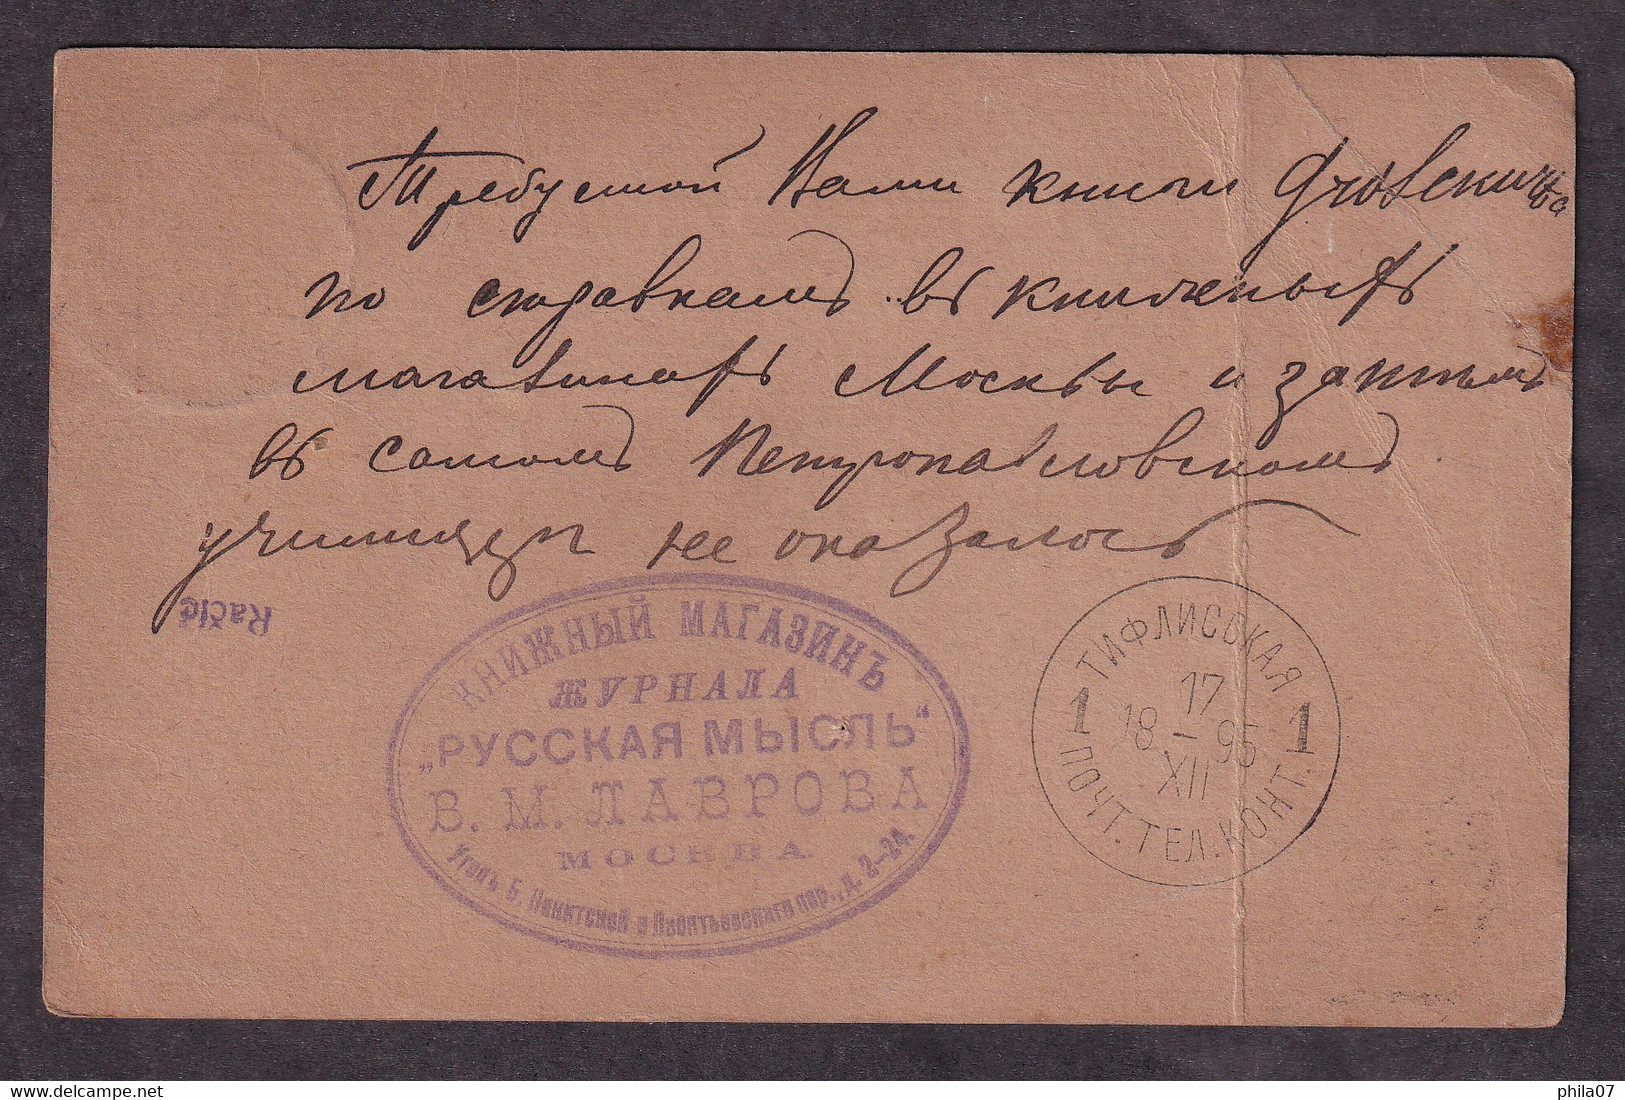 Требуемой Вами книги
по справкамъ въ книжныхъ
магазинахъ Москвы и затѣмъ
въ самомъ Петропавловскомъ
училищѣ не оказалось
Račić
КНИЖНЫЙ МАГАЗИНЪ
ЖУРНАЛА
„РУССКАЯ МЫСЛЬ“
В. М. ЛАВРОВА
МОСКВА
Уголъ Б. Никитской и Леонтьевскаго пер., д. 2–24.
ТИФЛИССКАЯ
17
18 – 95
XII
1 1
ПОЧТ. ТЕЛ. КОНТ.
phila07